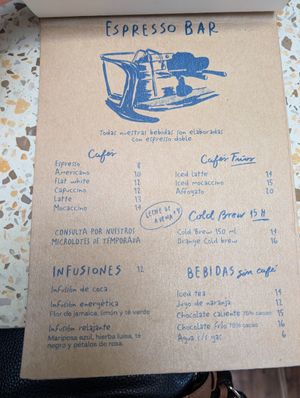 ESPRESSO BAR
Todas nuestras bebidas son elaboradas
con espresso doble
Cafés
Espresso 8
Americano 10
Flat white 12
Capuccino 12
Latte 13
Mocaccino 14
CONSULTA POR NUESTROS
MICROLOTES DE TEMPORADA
Cafés Fríos
Iced latte 14
Iced mocaccino 15
Affogato 20
LECHE DE
AVENA +4
Cold Brew 15 H
Cold Brew 150 ml 14
Orange Cold brew 16
INFUSIONES 12
Infusión de coca
Infusión energética
Flor de jamaica, limón y té verde
Infusión relajante
Mariposa azul, hierba luisa, té
negro y pétalos de rosa.
BEBIDAS sin café
Iced tea 14
Jugo de naranja 12
Chocolate caliente 70% cacao 15
Chocolate frío 70% cacao 16
Agua c/s gas 6